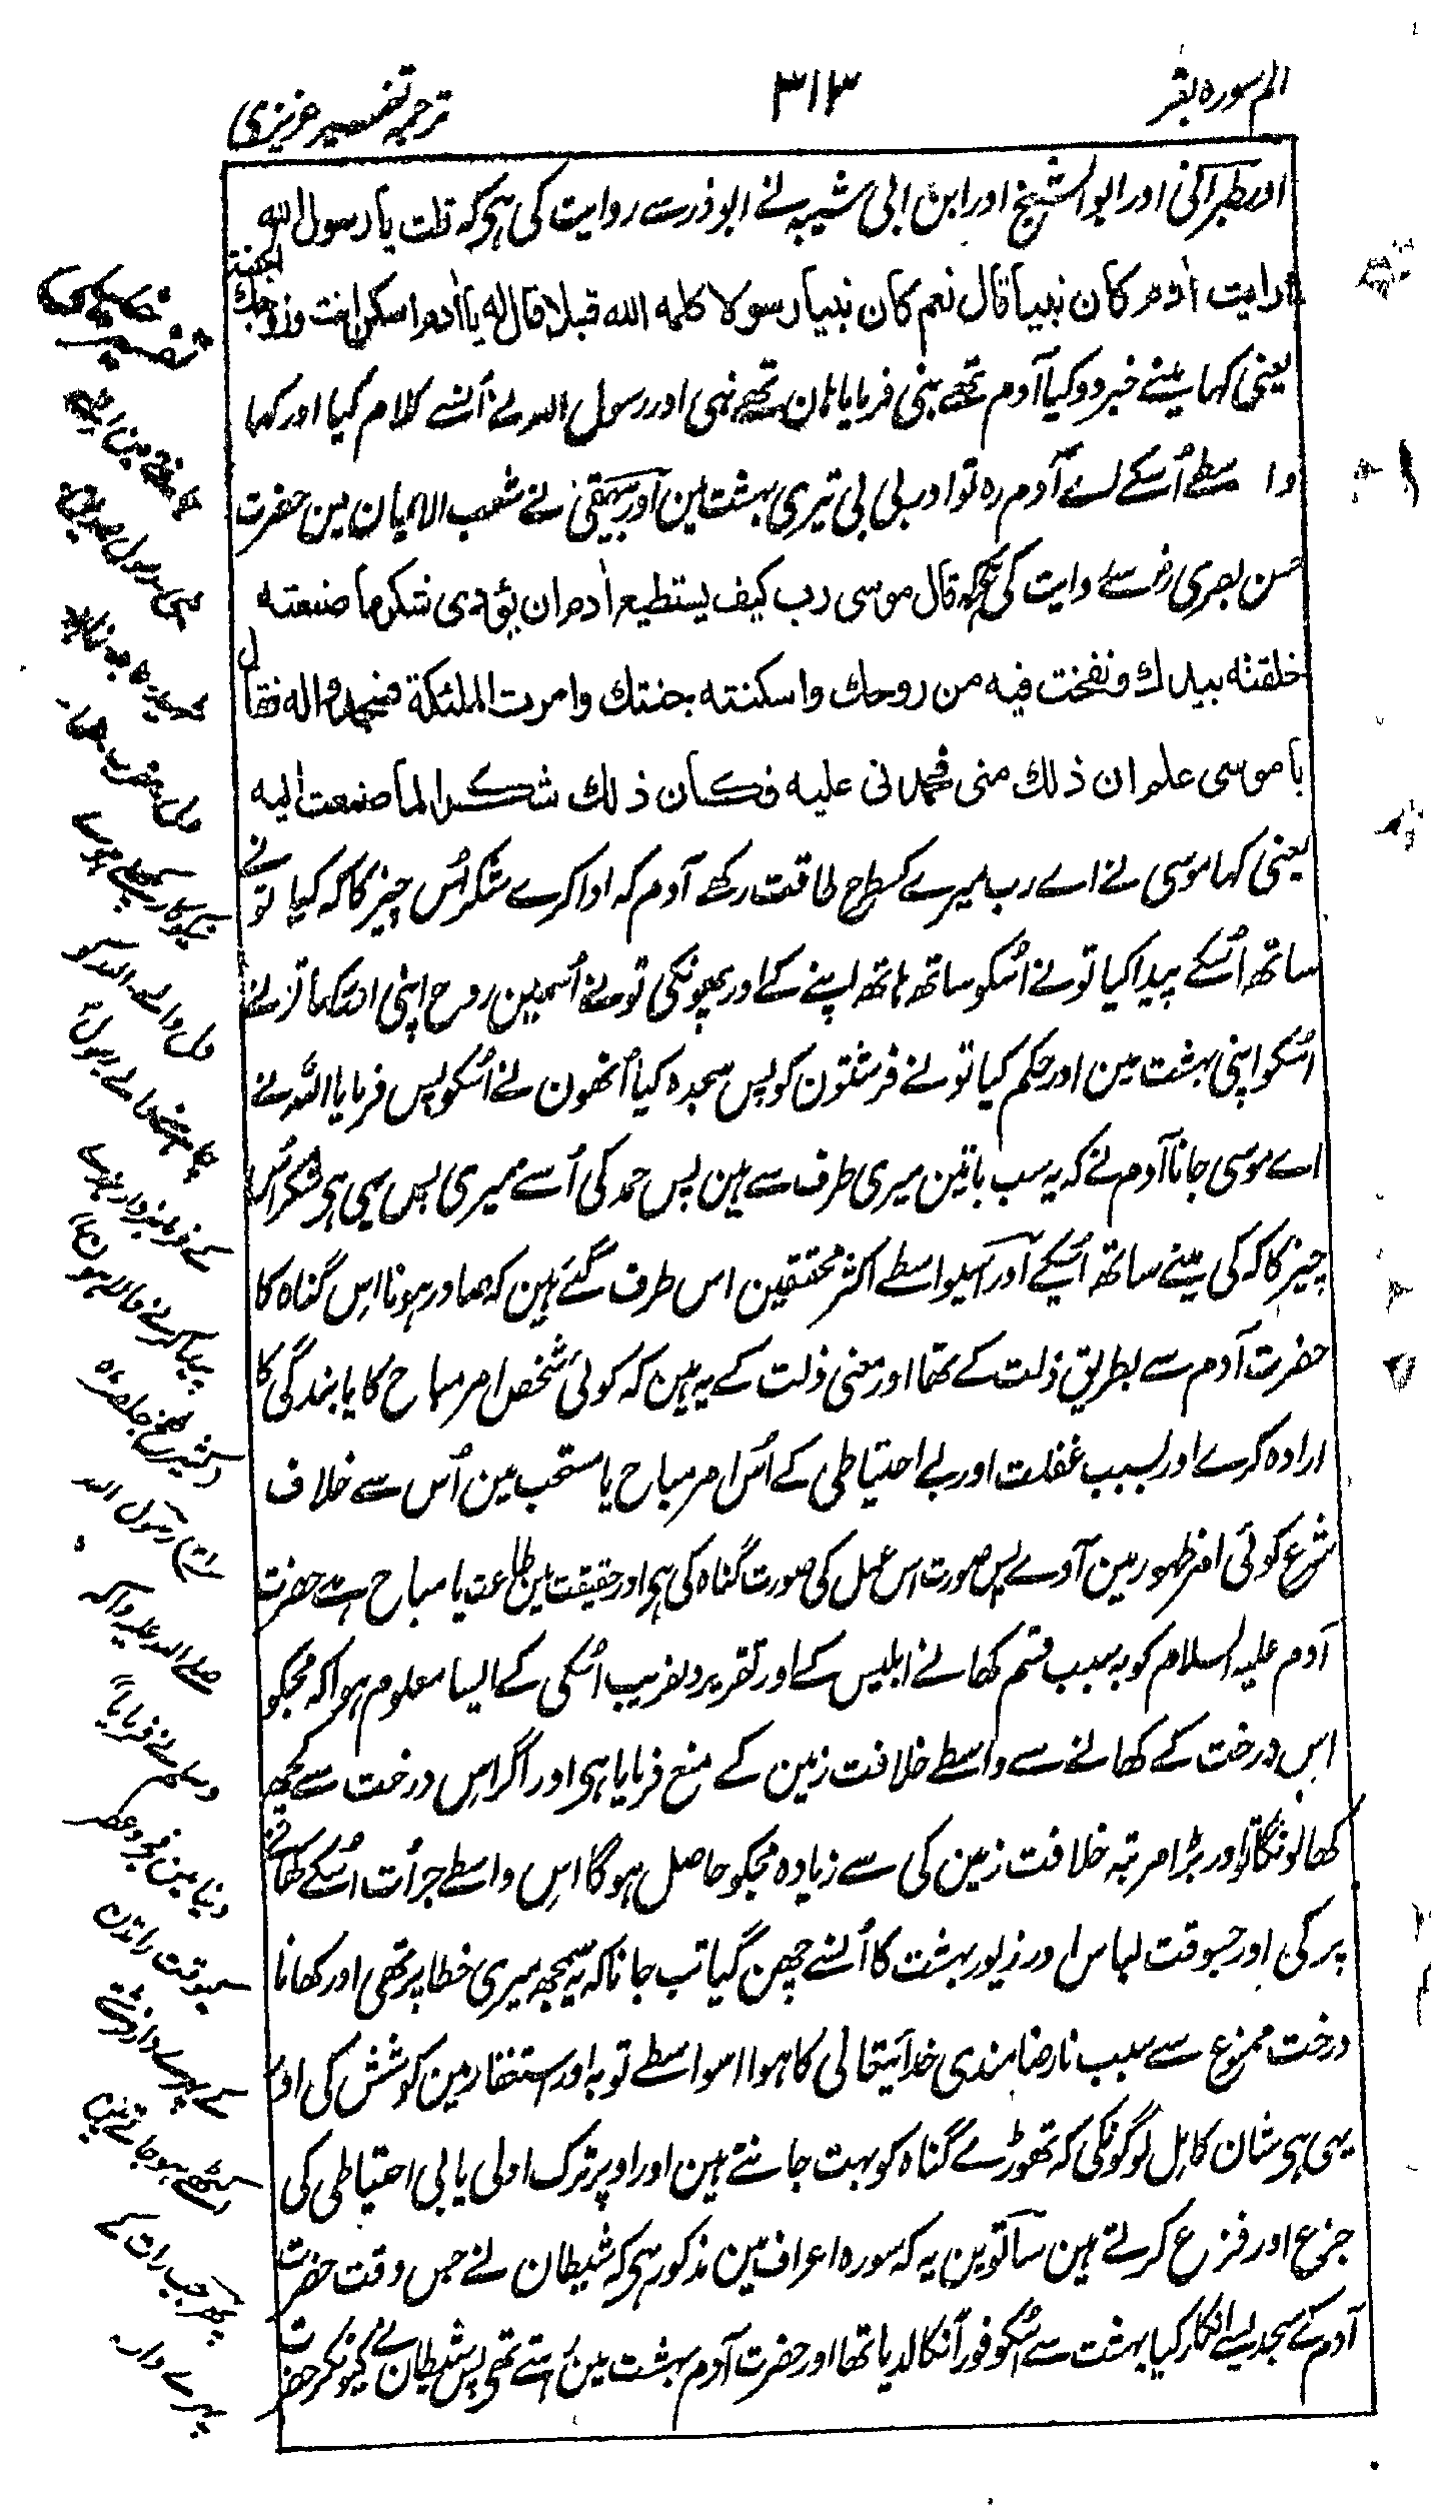 الم سورہ بقر
۳۱۳
ترجمہ تفسیر عزیزی
اور طبرانی اور ابو الشیخ اور ابن ابی شیبہ نے ابوذر سے روایت کی ہی کہ قلت یا رسول الله
ارایت اٰدم کان نبیا قال نعم کان نبیا رسولا کلمه الله قبلا قال له یا اٰدم اسکن انت وزوجك الجنة
یعنی کہا مینے خبر دو کیا آدم تھے نبی فرمایا ہان تھے نبی اور رسول اللہ نے اُنسے کلام کیا اور کہا
واسطے اُسکے اے آدم رہ تو اور بی بی تیری بہشت مین اور بیہقی نے شعب الایمان مین حضرت
حسن بصری رض سے روایت کی ہی کہ قال موسی رب کیف یستطیع اٰدم ان یؤدی شکر ما صنعته
خلقته بیدك ونفخت فیه من روحك واسکنته جنتك وامرت الملئکة فسجدوا له فقال
یا موسی علم ان ذلك منی فحمدنی علیه فکان ذلك شکرا لما صنعت الیه
یعنی کہا موسی نے اے رب میرے کسطرح طاقت رکھے آدم کہ ادا کرے شکر اُس چیز کا کہ کیا تو نے
ساتھ اُسکے پیدا کیا تونے اُسکو ساتھ ہاتھ اپنے کے اور پھونکی تونے اُسمین روح اپنی اور رکھا تونے
اُسکو اپنی بہشت مین اور حکم کیا تونے فرشتون کو پس سجدہ کیا اُنھون نے اُسکو پس فرمایا اللہ نے
اے موسی جانا آدم نے کہ یہ سب باتین میری طرف سے ہین پس حمد کی اُسنے میری پس یہی ہی شکر اُس
چیز کا کہ کی مینے ساتھ اُسکے اور اسیواسطے اکثر محققین اس طرف گئے ہین کہ صادر ہونا اِس گناہ کا
حضرت آدم سے بطریق ذلت کے تھا اور معنی ذلت کے یہ ہین کہ کوئی شخص امر مباح کا یا بندگی کا
ارادہ کرے اور بسبب غفلت اور بے احتیاطی کے اُس امر مباح یا مستحب مین اُس سے خلاف
شرع کوئی امر ظہور مین آوے پس صورت اس عمل کی صورت گناہ کی ہی اور حقیقت مین طاعت یا مباح ہے حضرت
آدم علیہ السلام کو بہ سبب قسم کھانے ابلیس کے اور تقریر دلفریب اُسکی کے ایسا معلوم ہوا کہ مجکو
اِس درخت کے کھانے سے واسطے خلافت زمین کے منع فرمایا ہی اور اگر اِس درخت سے کچھ
کھا لونگا تو اور بڑا مرتبہ خلافت زمین کی سے زیادہ مجکو حاصل ہوگا اِس واسطے جرأت اُسکے کھانے
پر کی اور جسوقت لباس اور زیور بہشت کا اُنسے چھن گیا تب جانا کہ یہ سمجھ میری خطا پر تھی اور کھانا
درخت ممنوع سے سبب نارضامندی خدایتعالی کا ہوا اسواسطے توبہ اور استغفار مین کوشش کی اور
یہی ہی شان کامل لوگونکی کہ تھوڑے گناہ کو بہت جانتے ہین اور اوپر ترک اولی یا بی احتیاطی کی
جزع اور فزع کرتے ہین ساتوین یہ کہ سورہ اعراف مین مذکور ہی کہ شیطان نے جس وقت حضرت
آدم کے سجدیسے انکار کیا بہشت سے اُسکو فوراً نکالدیا تھا اور حضرت آدم بہشت مین رہتے تھی پس شیطان نے کیونکر حضرت
پیدا کرنے والا ہون
رسول اللہ
صلے اللہ علیہ وآلہ
وسلم نے فرمایا
دنیا مین
جسوقت رات دن
کے پہرے دار فرشتے
اکٹھے ہو جاتے ہین
پھر جب رات کے
پہرے دار